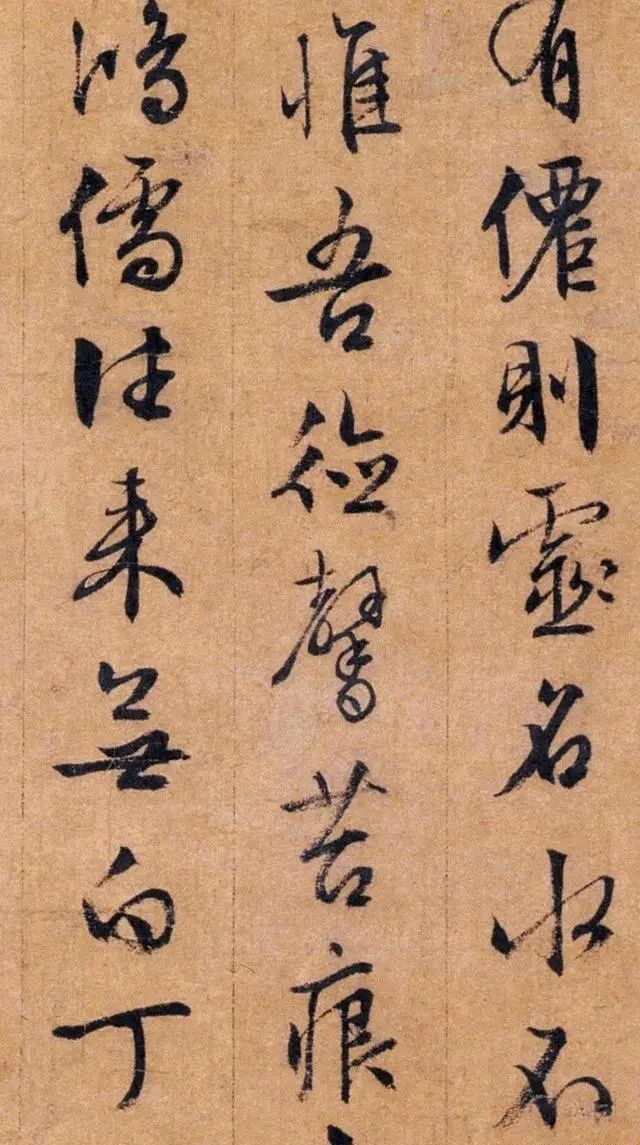 有僊則靈名水不
惟吾德馨苔痕
鴻儒往来無白丁